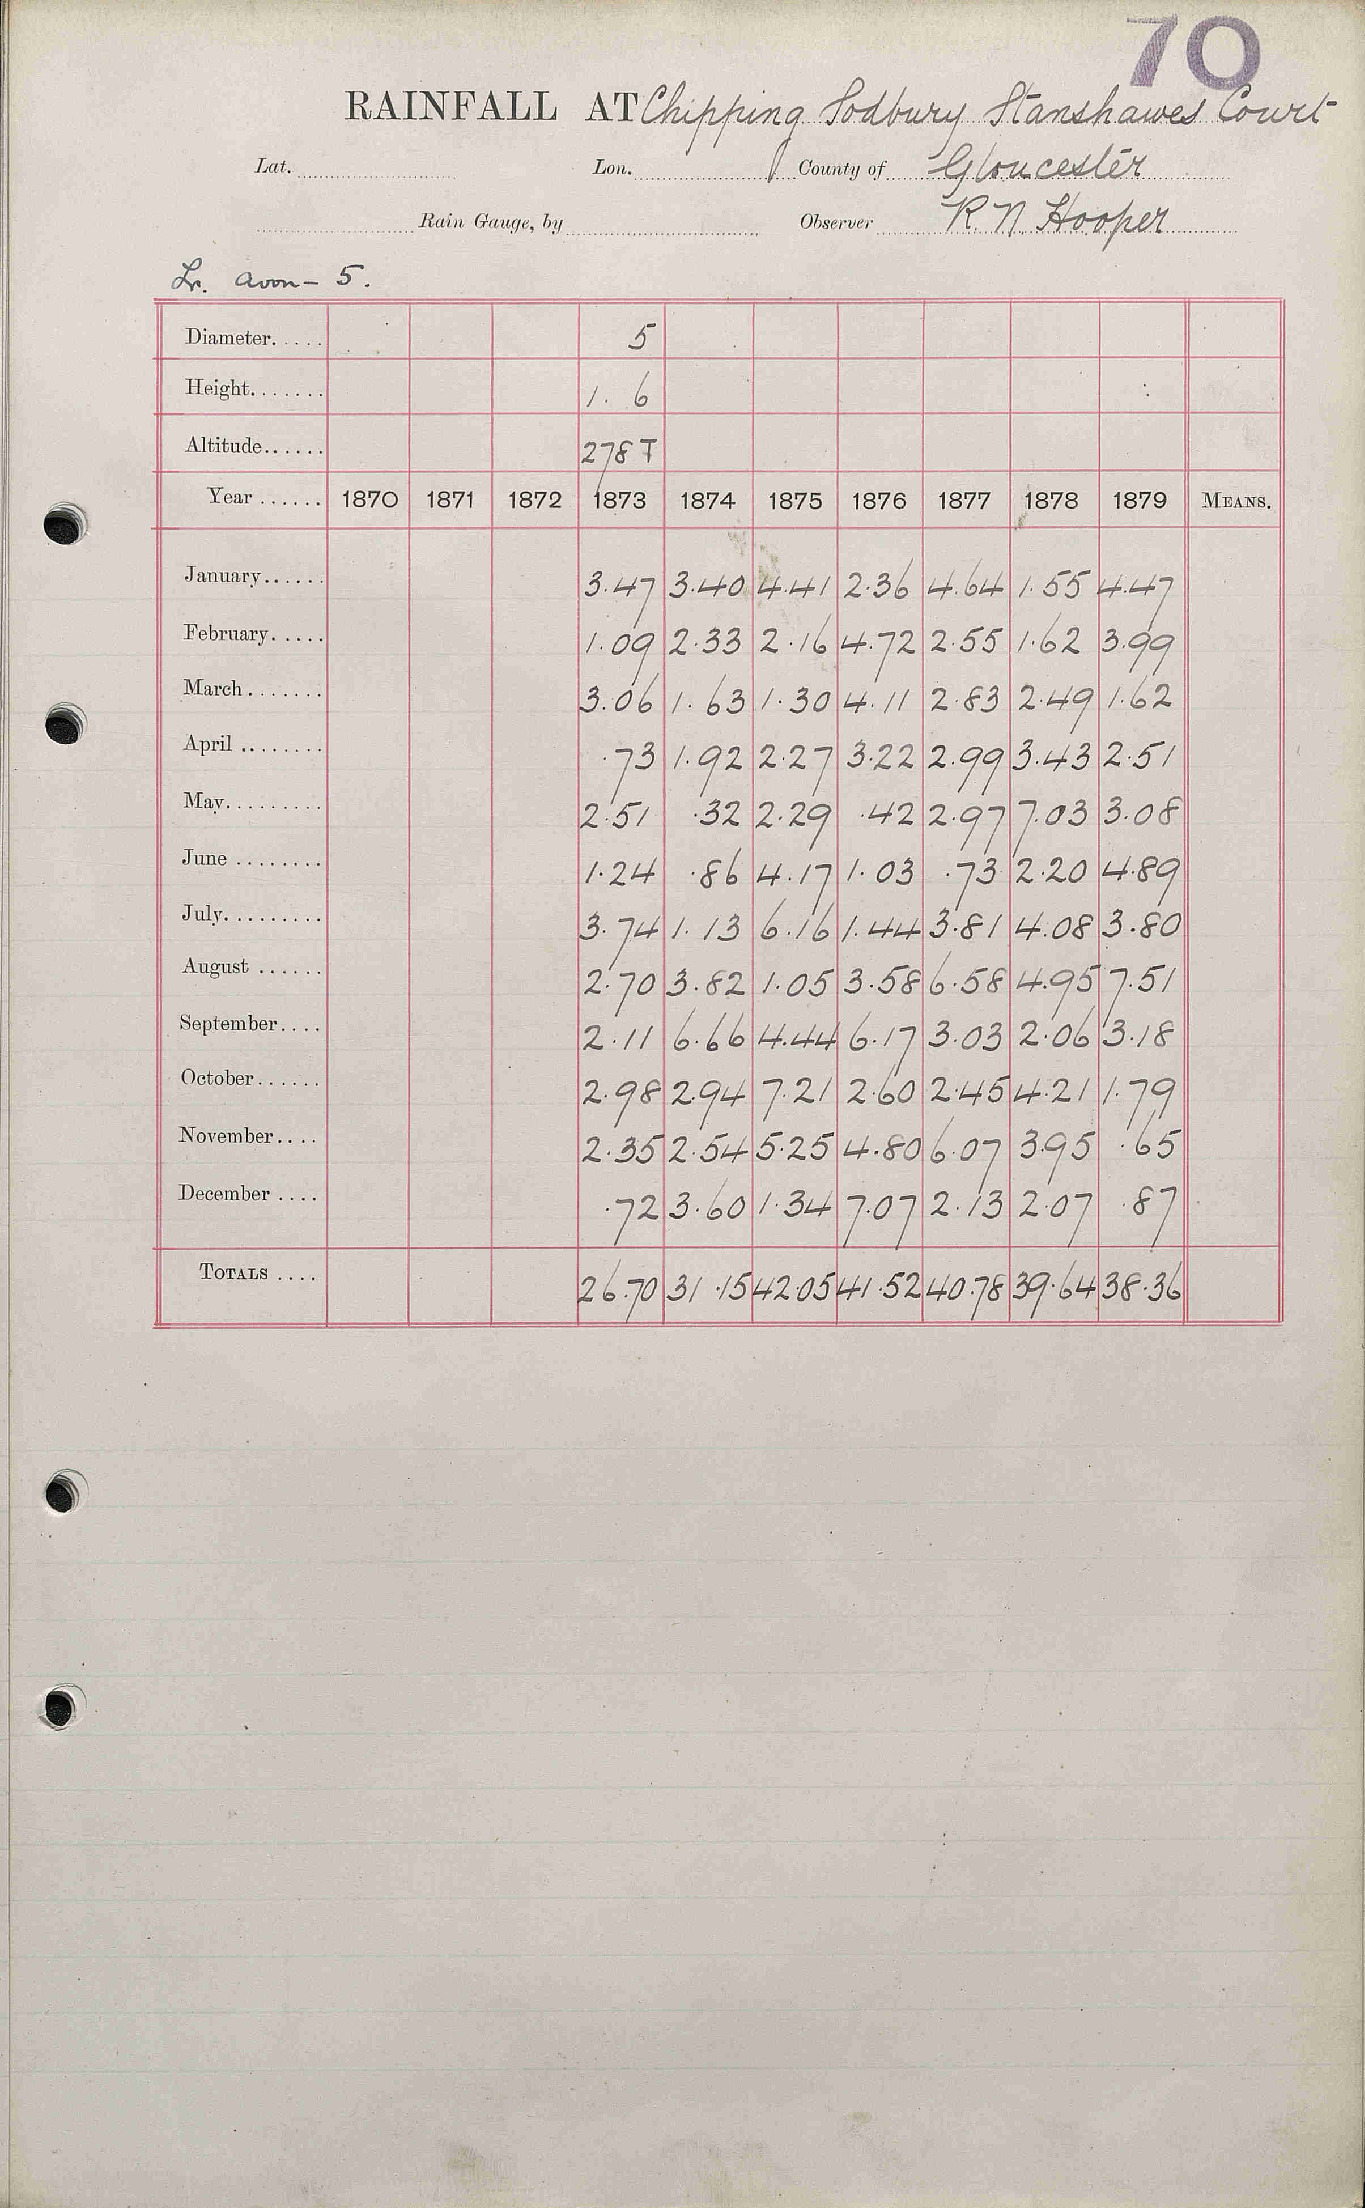 70
RAINFALL AT Chipping Sodbury Stanshawes Court
Lat. Lon. County of Gloucester
Rain Gauge, by Observer R. N. Hooper
Lr. Avon - 5.
Diameter..... 5
Height....... 1. 6
Altitude...... 278 T
Year ...... 1870 1871 1872 1873 1874 1875 1876 1877 1878 1879 MEANS.
January...... 3.47 3.40 4.41 2.36 4.64 1.55 4.47
February..... 1.09 2.33 2.16 4.72 2.55 1.62 3.99
March....... 3.06 1.63 1.30 4.11 2.83 2.49 1.62
April ........ .73 1.92 2.27 3.22 2.99 3.43 2.51
May......... 2.51 .32 2.29 .42 2.97 7.03 3.08
June ........ 1.24 .86 4.17 1.03 .73 2.20 4.89
July......... 3.74 1.13 6.16 1.44 3.81 4.08 3.80
August ...... 2.70 3.82 1.05 3.58 6.58 4.95 7.51
September.... 2.11 6.66 4.44 6.17 3.03 2.06 3.18
October...... 2.98 2.94 7.21 2.60 2.45 4.21 1.79
November.... 2.35 2.54 5.25 4.80 6.07 3.95 .65
December .... .72 3.60 1.34 7.07 2.13 2.07 .87
TOTALS .... 26.70 31.15 42.05 41.52 40.78 39.64 38.36